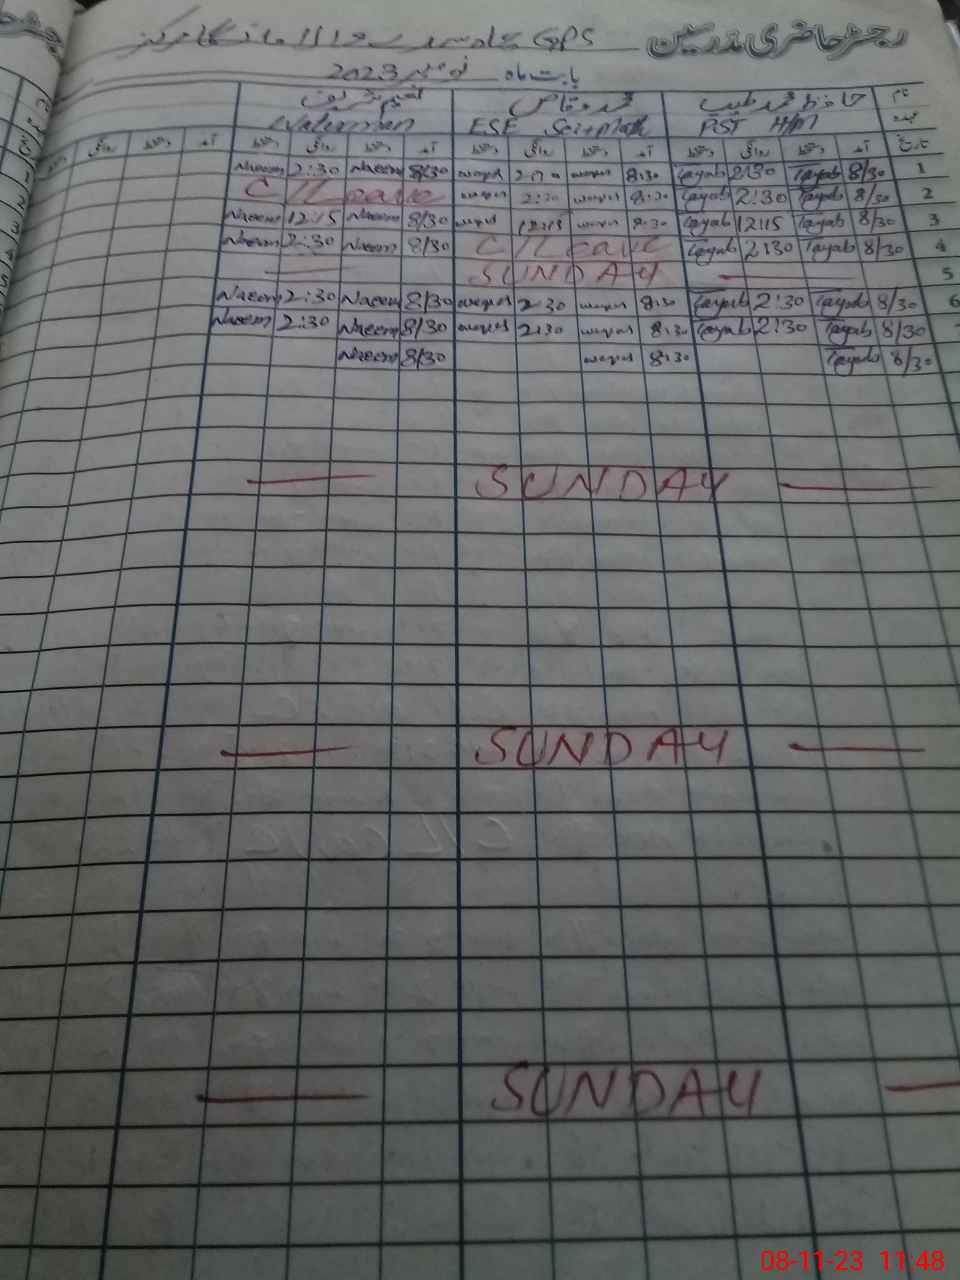 رجسٹر حاضری مدرسین GPS
بابت ماہ نومبر 2023
نام
حافظ محمد طیب
محمد وقاص
PST H/M
ESE Sci+Math
Waterman
تاریخ آمد دستخط روانگی دستخط آمد دستخط روانگی دستخط آمد دستخط روانگی دستخط آمد دستخط روانگی دستخط
1 8/30 Tayab 8:30 Tayab 8:30 waqas waqas 8/30 Naeem 2:30 Naeem
2 8/30 Tayab 2:30 Tayab 8:30 waqas 2:30 waqas C/Leave
3 8/30 Tayab 12:15 Tayab 8:30 waqas 12:15 waqas 8/30 Naeem 12:15 Naeem
4 8/30 Tayab 2:30 Tayab C/Leave 8/30 Naeem 2:30 Naeem
5 SUNDAY
6 8/30 Tayab 2:30 Tayab 8:30 waqas 2:30 waqas 8/30 Naeem 2:30 Naeem
7 8/30 Tayab 2:30 Tayab 8:30 waqas 2:30 waqas 8/30 Naeem 2:30 Naeem
8/30 Tayab 8:30 waqas 8/30 Naeem
SUNDAY
SUNDAY
SUNDAY
08-11-23 11:48